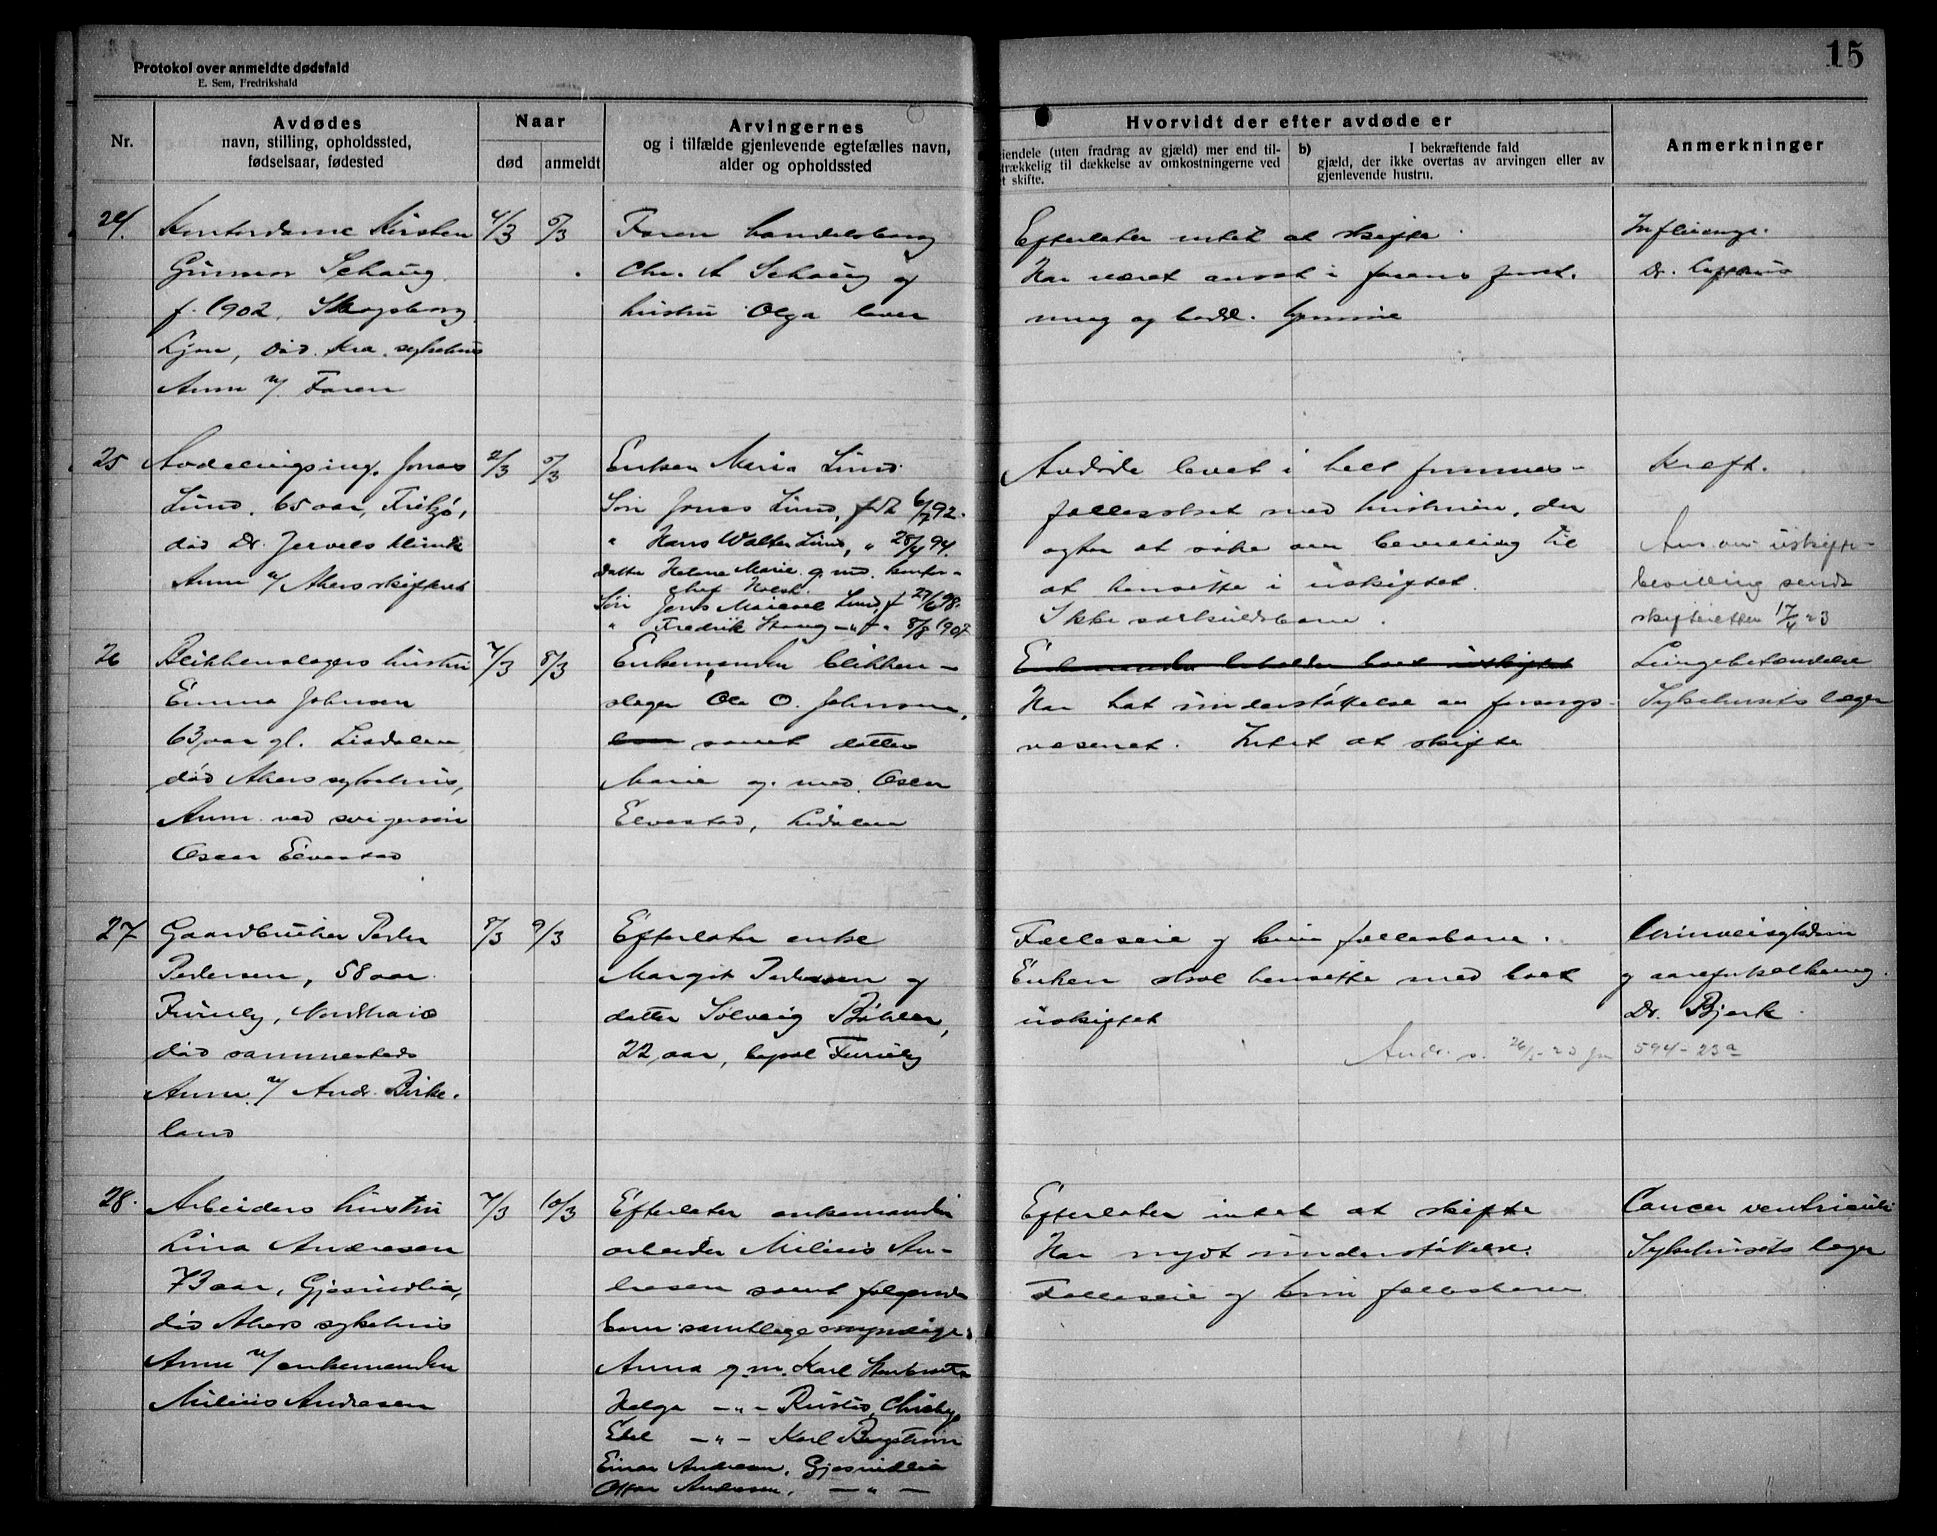 15
Protokol over anmeldte dødsfald
E. Sem, Fredrikshald
Nr.
Avdødes
navn, stilling, opholdssted,
fødselsaar, fødested
Naar
død
anmeldt
Arvingernes
og i tilfælde gjenlevende egtefælles navn,
alder og opholdssted
Hvorvidt der efter avdøde er
eiendele (uten fradrag av gjæld) mer end til-
strækkelig til dækkelse av omkostningerne ved
et skifte.
b) I bekræftende fald
gjæld, der ikke overtas av arvingen eller av
gjenlevende hustru.
Anmerkninger
24.
Kontordame Kirsten
Gunvor Schaug
f. 1902, Skogsborg
Ljan, død Kra. sykehus
Anm. v/ Faren
4/3
5/3
Faren handelsborg
Chr. A Schaug og
hustru Olga lever
Efterlater intet at skifte.
Har været ansat i farens forret-
ning og bodd hjemme
Influenza.
Dr.
25
Avdelingsing. Jonas
Lund, 65 aar,
død Dr. Jervels klinik
Anm v/ Akersskifteret
2/3
5/3
Enken Maria Lund.
Søn Jonas Lund, født 6/7 92.
" Hans Walter Lund, " 28/4 94.
Datter Helene Marie g. m. kontor-
chef Holst.
Søn Jens Lund, f 27/6 98.
" Fredrik Stang —"— 8/8 1907
Avdøde levet i helt formues-
fællesskap med hustruen, der
agter at søke om bevilling til
at hensitte i uskiftet.
Ikke særkuldsbarn.
Kræft.
Ans om uskifte-
bevilling sendt
skifteretten 17/4 23
26
Blikkenslagers hustru
Emma Johnsen
63 aar gl. Lisdalen
død Akers sykehus,
Anm. ved svigersøn
Oscar Elvestad
7/3
8/3
Enkemanden blikken-
slager Ole O. Johnsen,
samt datter
Marie g. med Oscar
Elvestad, Lisdalen
Enkemanden beholder boet uskiftet
Har hat understøttelse av forsorgs-
væsenet. Intet at skifte
Lungebetændelse
Sykehusets læger
27
Gaardbruker Peder
Pedersen, 58 aar
Furuly, Nordstrand
død sammesteds
Anm. v/ Andr. Birke-
land
8/3
9/3
Efterlater enke
Margit Pedersen og
datter Solveig Bøhler,
22 aar, bopæl Furuly
Fælleseie og kun fællesbarn.
Enken skal hensitte med boet
uskiftet
Urinveissykdom
og aareforkalkning.
Dr. Bjerk.
594-23a
28.
Arbeiders hustru
Lina Andresen
73 aar, Gjøsundlia,
død Akers sykehus
Anm v/ enkemanden
Milius Andresen
7/3
10/3
Efterlater enkemanden
arbeider Milius An-
dresen samt følgende
barn samtlige myndige:
Anna g. m. Karl
Helga —"—
—"— Karl Bergstrøm
Einar Andresen, Gjøsundlia
Andresen, —"—
Efterlater intet at skifte
Har nydt understøttelse.
Fælleseie og kun fællesbarn
Cancer ventriculi
Sykehusets læger